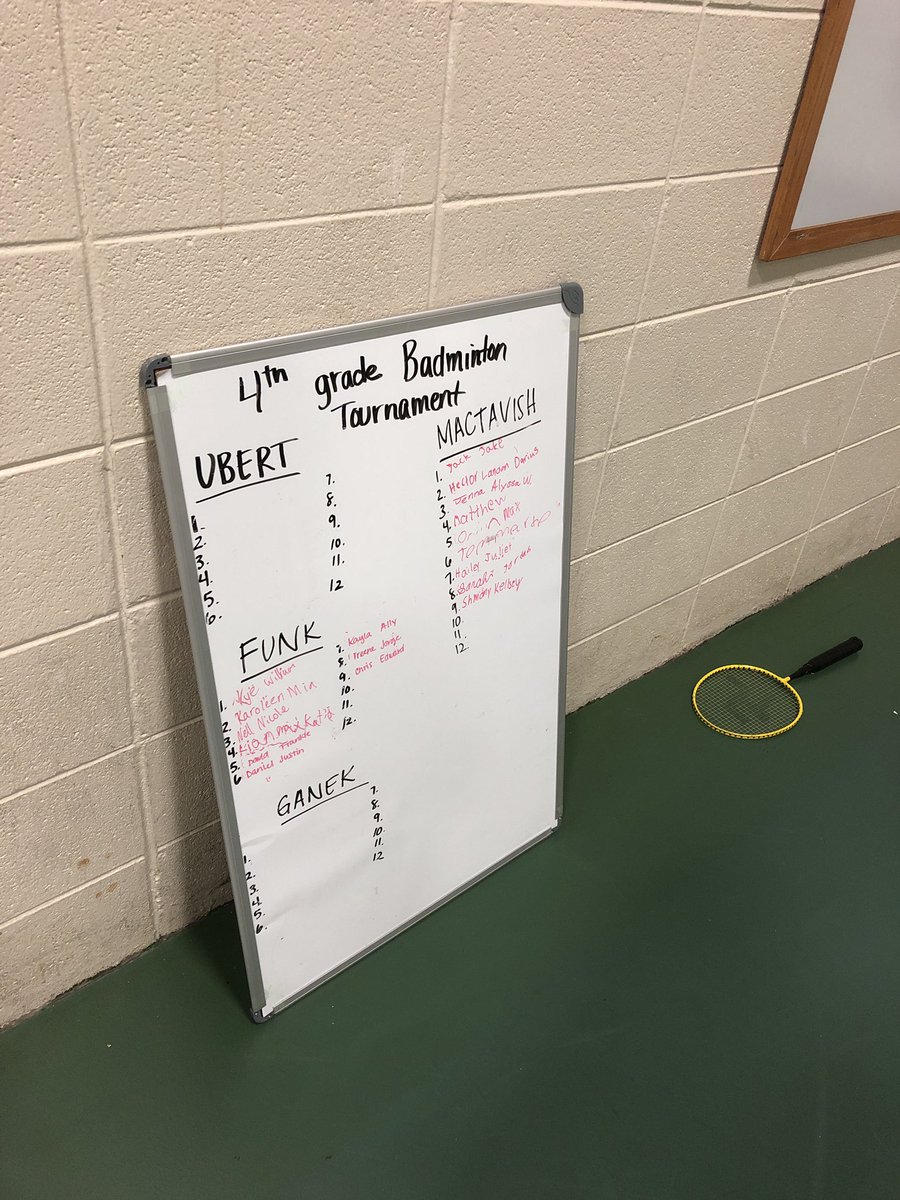 4th grade Badminton
Tournament
UBERT
1.
2.
3.
4.
5.
6.
7.
8.
9.
10.
11.
12
MACTAVISH
1. Jack Jake
2. Hector Landon Darius
3. Jenna Alyssa W.
4. Matthew
5. Max
6.
7. Hailey Juliet
8. Sarah Jordan
9. Kelsey
10.
11.
12.
FUNK
1. Kyle William
2. Karoleen Min
3. Nell Nicole
4.
5. David Frankie
6 Daniel Justin
7. Kayla Ally
8. Treena Jorge
9. Chris Edward
10.
11.
12.
GANEK
1.
2.
3.
4.
5.
6.
7.
8.
9.
10.
11.
12